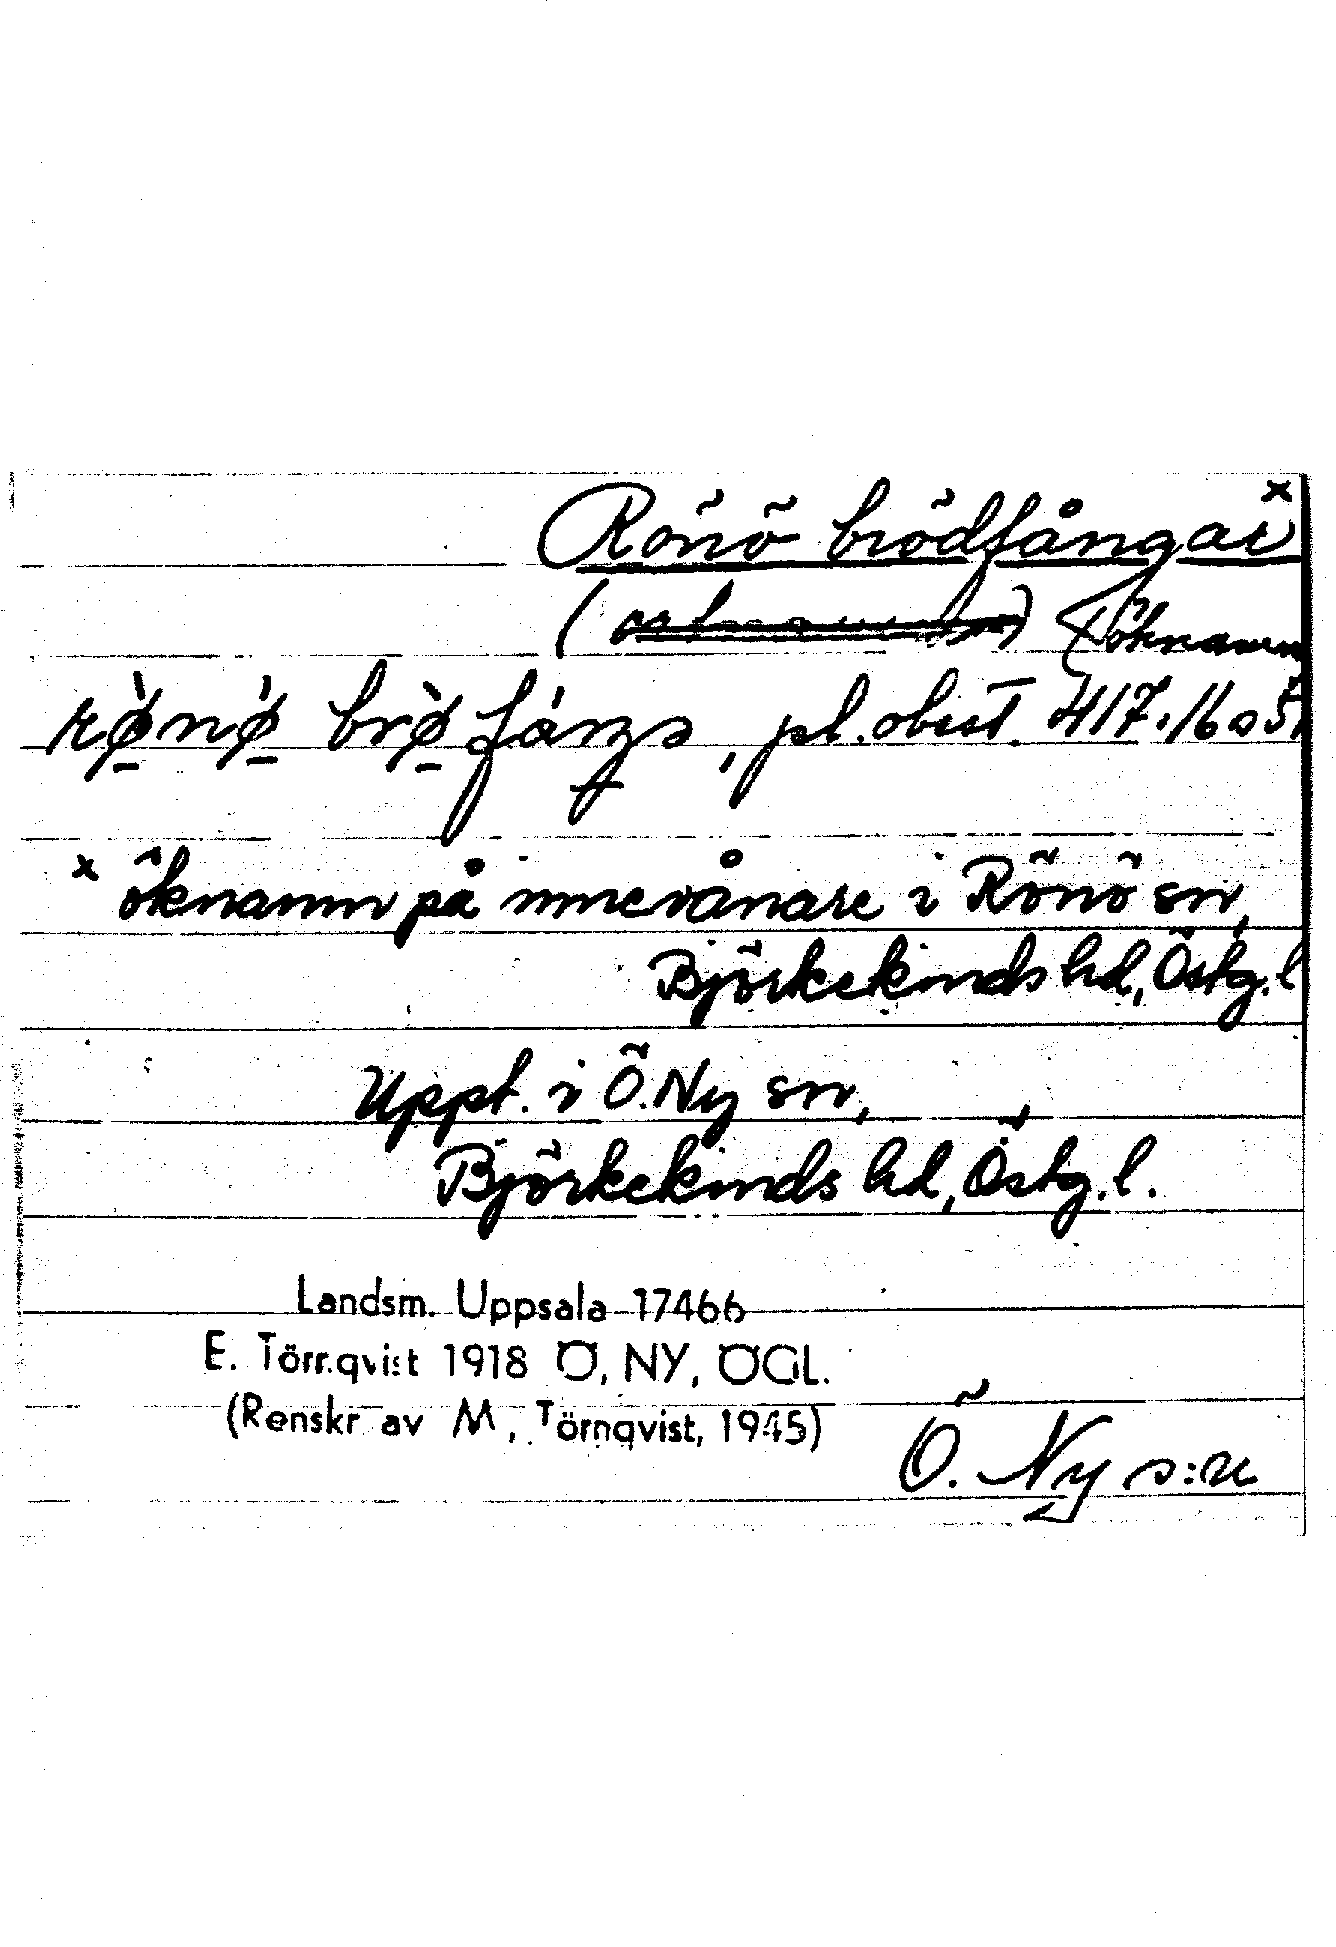 Rönö brödfångar x
( ) öknamn
rø̀nø̀ brø̀fáŋgɔ, pl. obest. 417.16 o 5
x öknamn på innevånare i Rönö sn,
Björkekinds hd, Östg.l
Uppt. i Ö. Ny sn,
Björkekinds hd, Östg.l.
Landsm. Uppsala 17466
E. Törnqvist 1918 Ö, NY, ÖGL.
(Renskr av M, Törnqvist, 1945)
Ö. Ny s:n